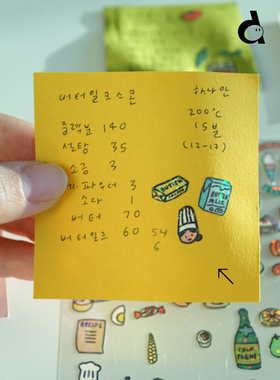 버터밀크스콘
하나만
200°C
15분
(12-17)
중력분 140
설탕 35
소금 3
파우더 3
소다 1
버터 70
버터밀크 60 54
6
BUTTER
MILK
RECIPE